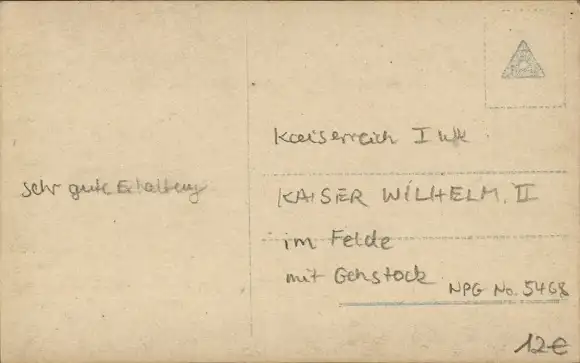 sehr gute Erhaltung
Kaiserreich I WK
KAISER WILHELM, II
im Felde
mit Gehstock
NPG No. 5468
12€